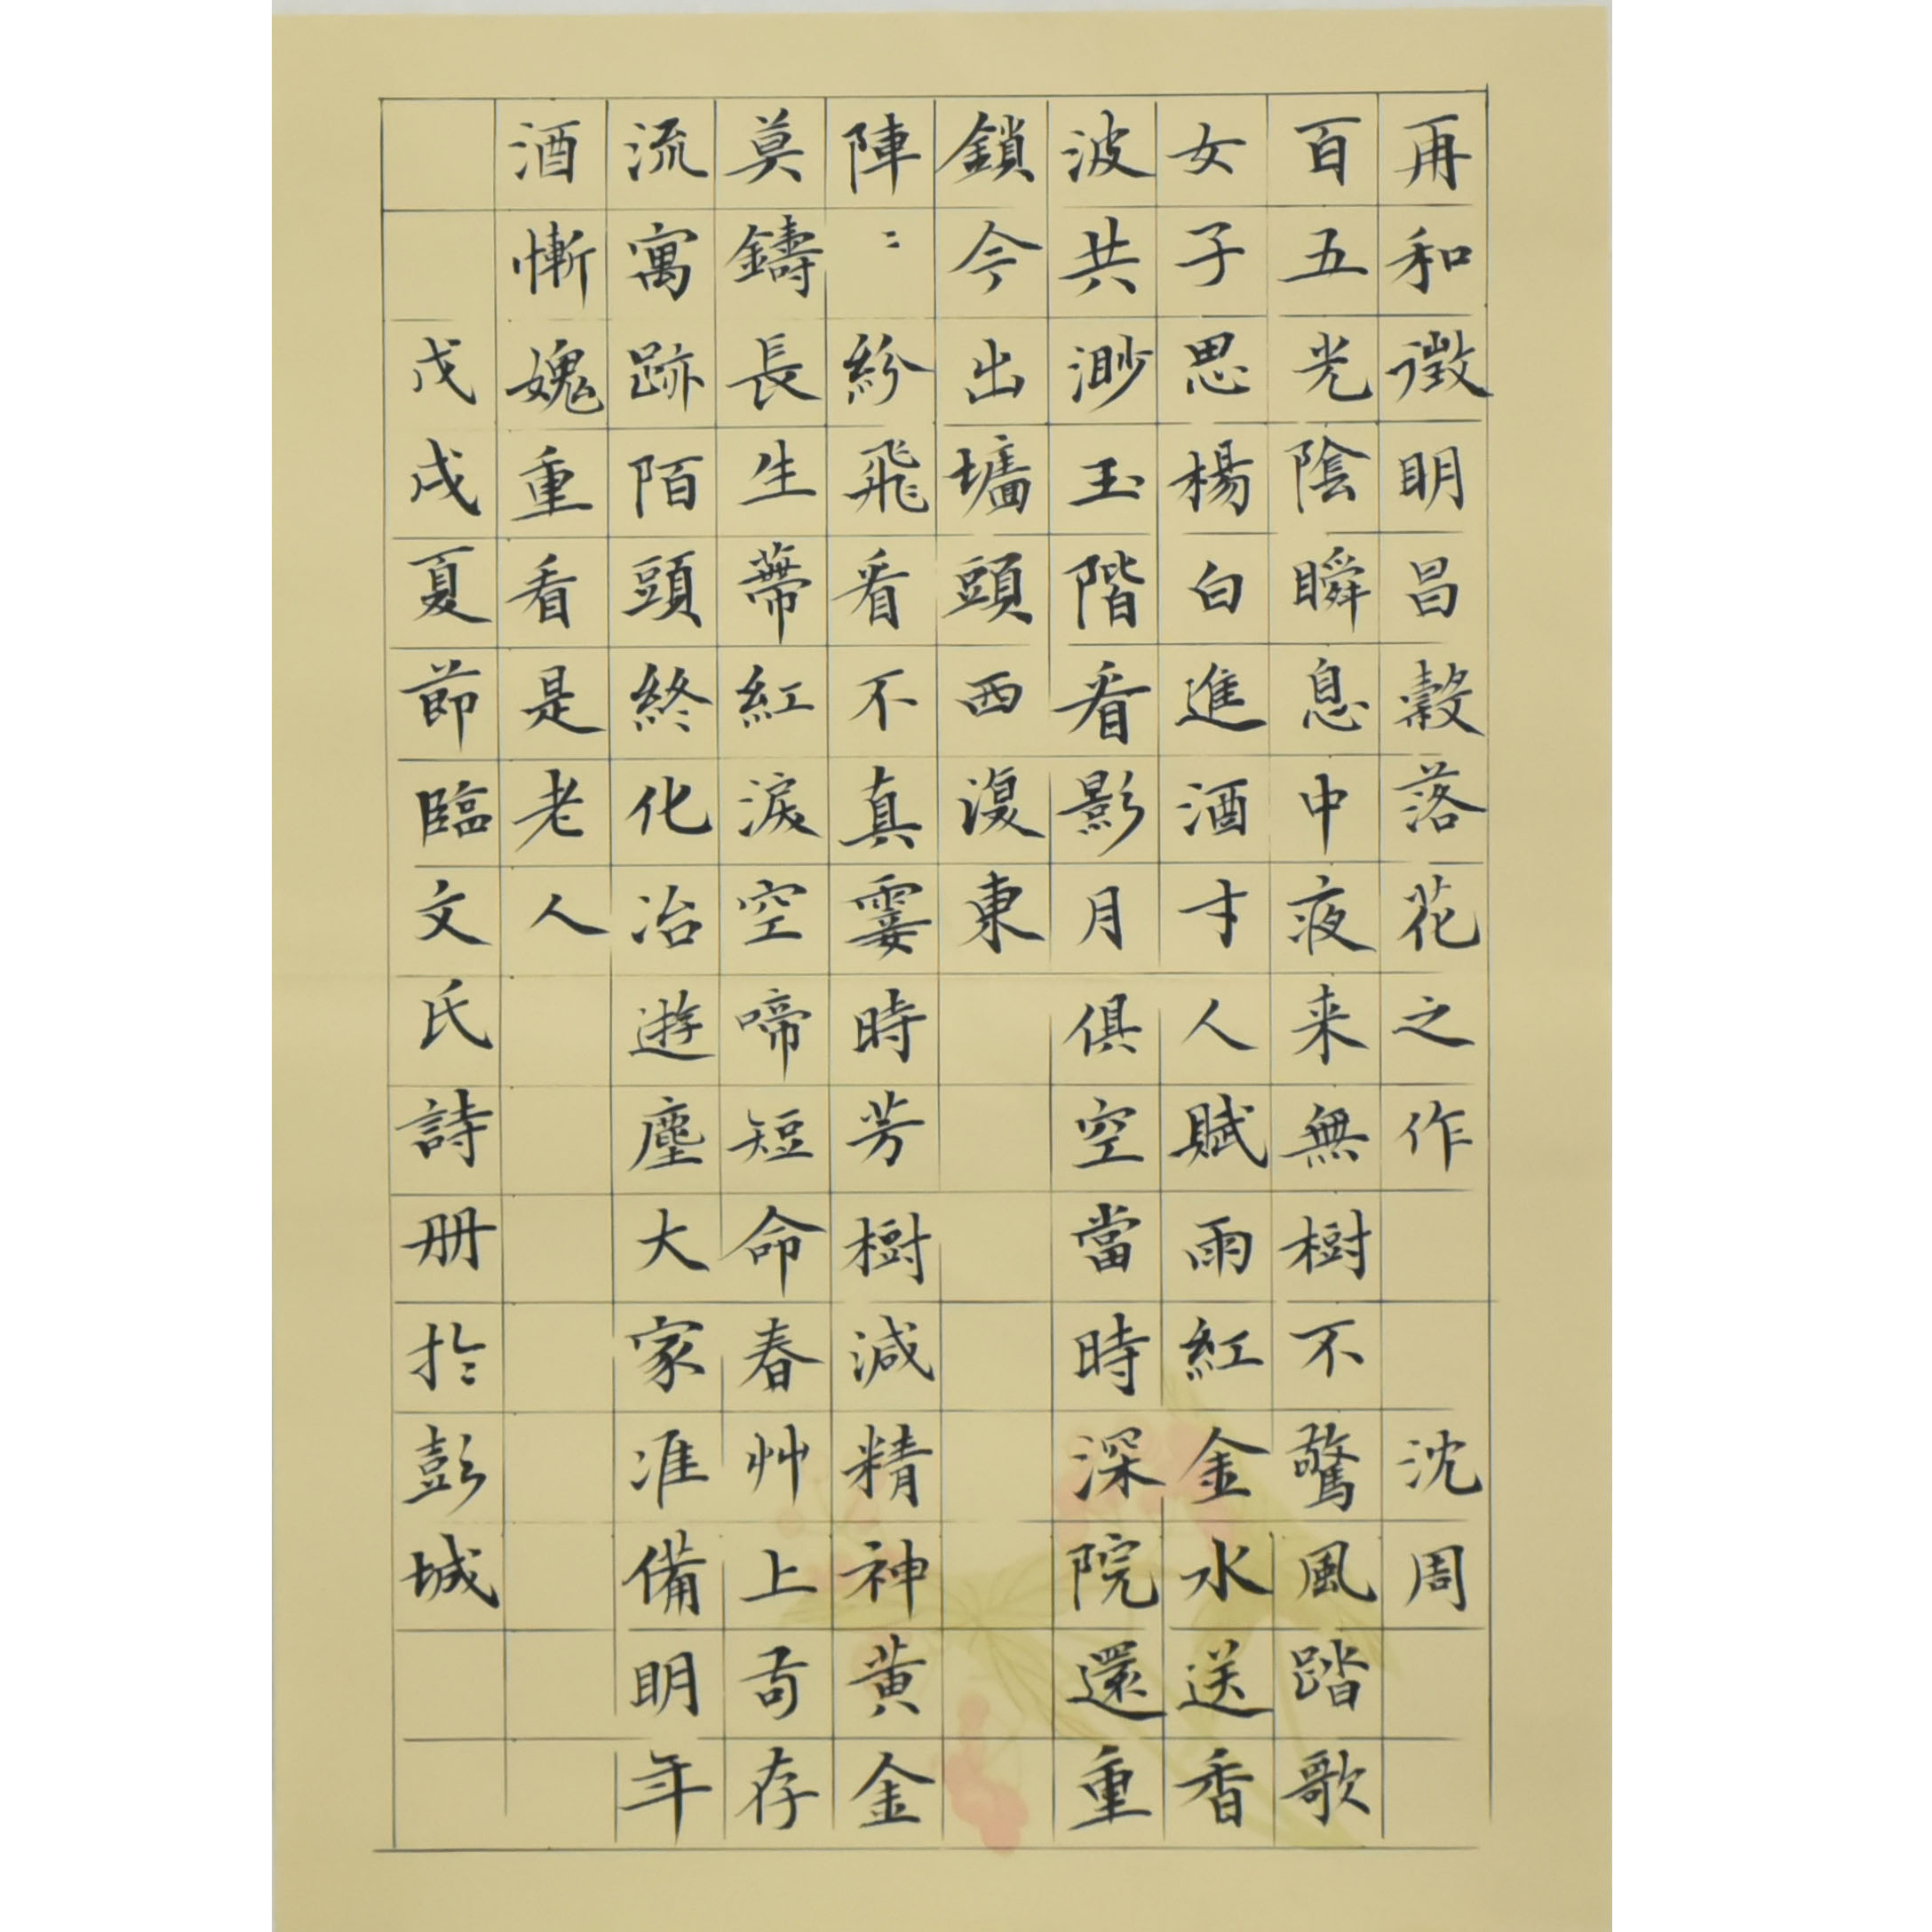 再和徵明昌穀落花之作沈周
百五光陰瞬息中夜来無樹不驚風踏歌
女子思楊白進酒才人賦雨紅金水送香
波共渺玉階看影月俱空當時深院還重
鎖今出墻頭西復東
陣〻紛飛看不真霎時芳樹減精神黃金
莫鑄長生蔕紅淚空啼短命春艸上苟存
流寓跡陌頭終化冶遊塵大家准備明年
酒慚媿重看是老人
戊戌夏節臨文氏詩册於彭城